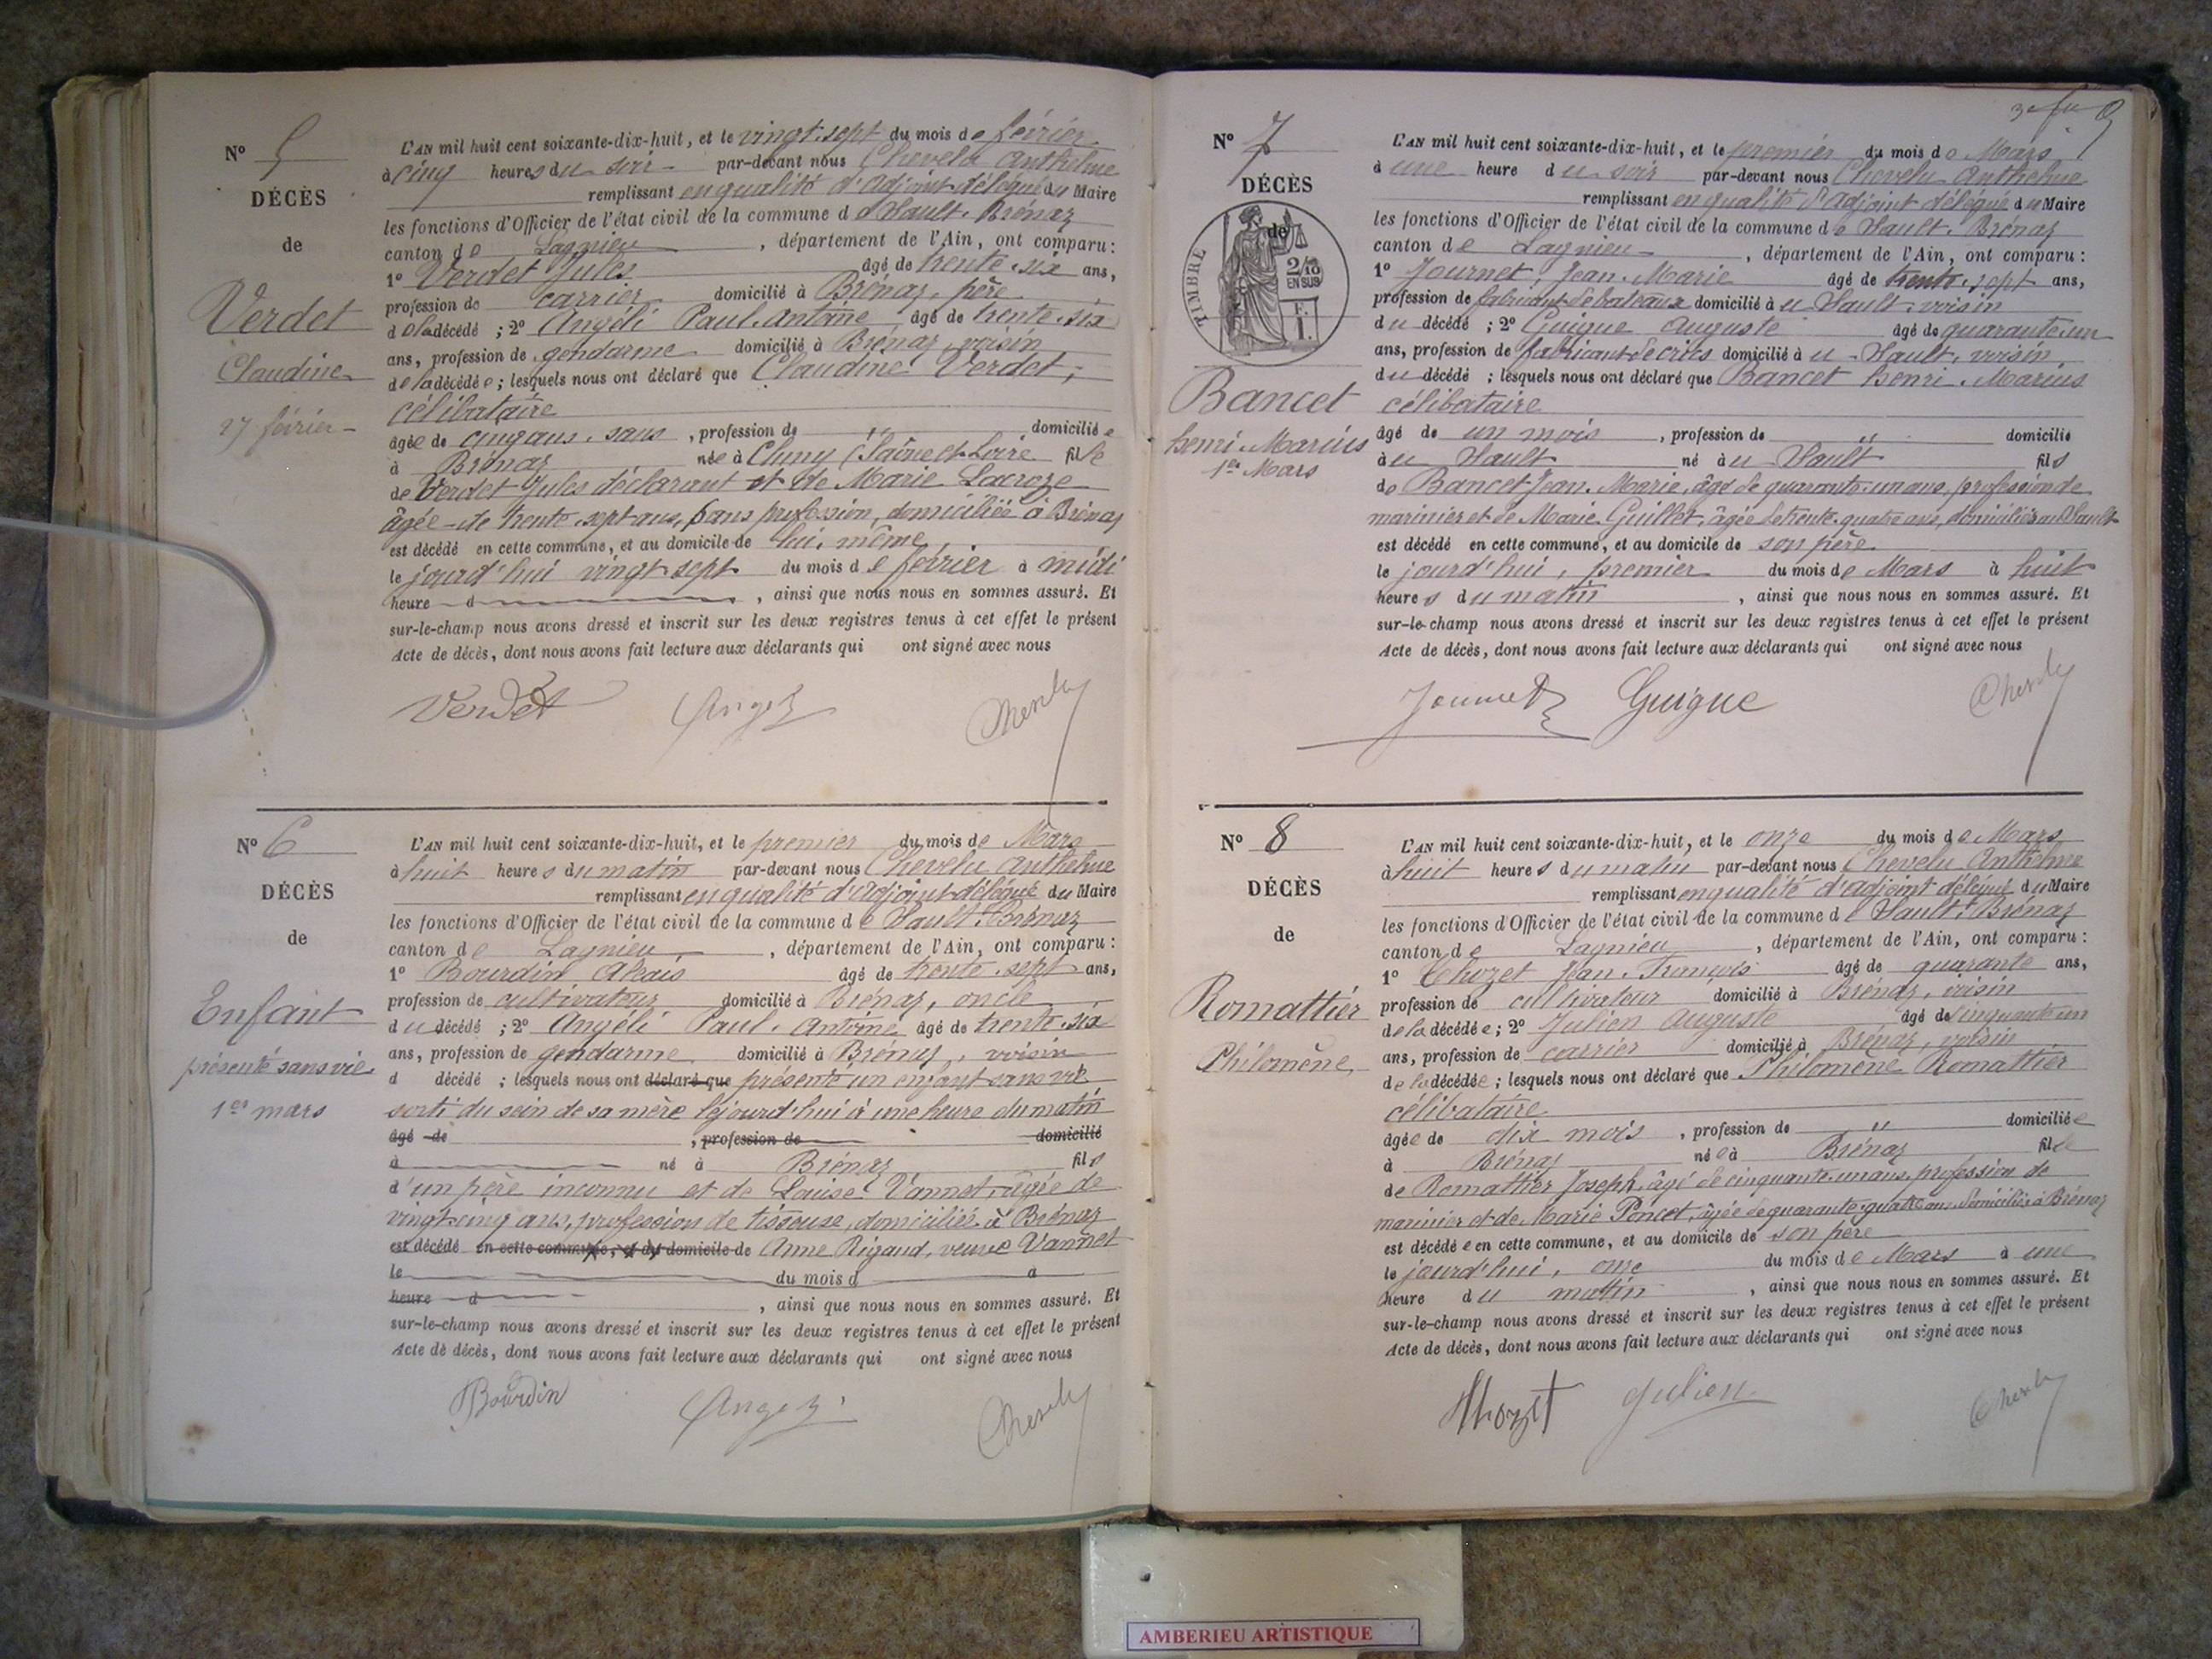 Nº 5
DÉCÈS
de
Verdet
Claudine
27 février
L'AN mil huit cent soixante-dix-huit, et le vingt-sept du mois de février
à cinq heures du soir par-devant nous Chevelu Anthelme
remplissant en qualité d'adjoint délégué du Maire
les fonctions d'Officier de l'état civil de la commune de Sault-Brénaz
canton de Lagnieu, département de l'Ain, ont comparu :
1º Verdet Jules âgé de trente-six ans,
profession de carrier domicilié à Brénaz, père
de la décédé ; 2º Angéli Paul Antoine âgé de trente-six
ans, profession de gendarme domicilié à Brénaz, voisin
de la décédée ; lesquels nous ont déclaré que Claudine Verdet,
célibataire
âgée de cinq ans, sans, profession de " domiciliée
à Brénaz née à Cluny (Saône et Loire fille
de Verdet Jules déclarant et de Marie Lacroze
âgée de trente-sept ans, sans profession, domiciliée à Brénaz
est décédé en cette commune, et au domicile de lui-même
le jourd'hui vingt-sept du mois de février à midi
heure d, ainsi que nous nous en sommes assuré. Et
sur-le-champ nous avons dressé et inscrit sur les deux registres tenus à cet effet le présent
Acte de décès, dont nous avons fait lecture aux déclarants qui ont signé avec nous
Verdet
Nº 6
DÉCÈS
de
Enfant
présenté sans vie
1er mars
L'AN mil huit cent soixante-dix-huit, et le premier du mois de Mars
à huit heures du matin par-devant nous Chevelu Anthelme
remplissant en qualité d'adjoint délégué du Maire
les fonctions d'Officier de l'état civil de la commune de Sault-Brénaz
canton de Lagnieu, département de l'Ain, ont comparu :
1º Bourdin âgé de trente-sept ans,
profession de cultivateur domicilié à Brénaz, oncle
du décédé ; 2º Angéli Paul Antoine âgé de trente-six
ans, profession de gendarme domicilié à Brénaz, voisin
d décédé ; lesquels nous ont déclaré que présenté un enfant sans vie
sorti du sein de sa mère lejourd'hui à une heure du matin
âgé de, profession de domicilié
à né à Brénaz fils
d'un père inconnu et de Louise Vannet, âgée de
vingt-cinq ans, profession de tisseuse, domiciliée à Brénaz
est décédé en cette commune, et au domicile de Anne Rigaud, veuve Vannet
le du mois d à
heure d, ainsi que nous nous en sommes assuré. Et
sur-le-champ nous avons dressé et inscrit sur les deux registres tenus à cet effet le présent
Acte de décès, dont nous avons fait lecture aux déclarants qui ont signé avec nous
Bourdin
Nº 7
DÉCÈS
de
TIMBRE
2/10
EN SUS
Bancet
henri-Marius
1er Mars
L'AN mil huit cent soixante-dix-huit, et le premier du mois de Mars
à une heure du soir par-devant nous Chevelu Anthelme
remplissant en qualité d'adjoint délégué du Maire
les fonctions d'Officier de l'état civil de la commune de Sault-Brénaz
canton de Lagnieu, département de l'Ain, ont comparu :
1º Journet, Jean-Marie âgé de trente-sept ans,
profession de fabricant de bateaux domicilié à u Sault, voisin
du décédé ; 2º Guigue Auguste âgé de quarante-un
ans, profession de fabricant de domicilié à u Sault, voisin
du décédé ; lesquels nous ont déclaré que Bancet henri-Marius
célibataire
âgé de un mois, profession de " domicilié
à u Sault né à u Sault fils
de Bancet Jean-Marie, âgé de quarante-un ans, profession de
marinier et de Marie Guillet, âgée de trente-quatre ans, domiciliés au Sault
est décédé en cette commune, et au domicile de son père
le jourd'hui, premier du mois de Mars à huit
heures du matin, ainsi que nous nous en sommes assuré. Et
sur-le-champ nous avons dressé et inscrit sur les deux registres tenus à cet effet le présent
Acte de décès, dont nous avons fait lecture aux déclarants qui ont signé avec nous
Journet Guigue
Nº 8
DÉCÈS
de
Romattier
Philomène
L'AN mil huit cent soixante-dix-huit, et le onze du mois de Mars
à huit heures du matin par-devant nous Chevelu Anthelme
remplissant en qualité d'adjoint délégué du Maire
les fonctions d'Officier de l'état civil de la commune de Sault-Brénaz
canton de Lagnieu, département de l'Ain, ont comparu :
1º Thozet Jean-François âgé de quarante ans,
profession de cultivateur domicilié à Brénaz, voisin
de la décédée ; 2º Julien Auguste âgé de cinquante-un
ans, profession de carrier domicilié à Brénaz, voisin
de la décédée ; lesquels nous ont déclaré que Philomène Romattier
célibataire
âgée de dix mois, profession de " domiciliée
à Brénaz née à Brénaz fille
de Romattier Joseph, âgé de cinquante-un ans, profession de
marinier et de Marie Poncet, âgée de quarante-quatre ans, domiciliés à Brénaz
est décédée en cette commune, et au domicile de son père
le jourd'hui, onze du mois de Mars à une
heure du matin, ainsi que nous nous en sommes assuré. Et
sur-le-champ nous avons dressé et inscrit sur les deux registres tenus à cet effet le présent
Acte de décès, dont nous avons fait lecture aux déclarants qui ont signé avec nous
Thozet Julien
AMBERIEU ARTISTIQUE